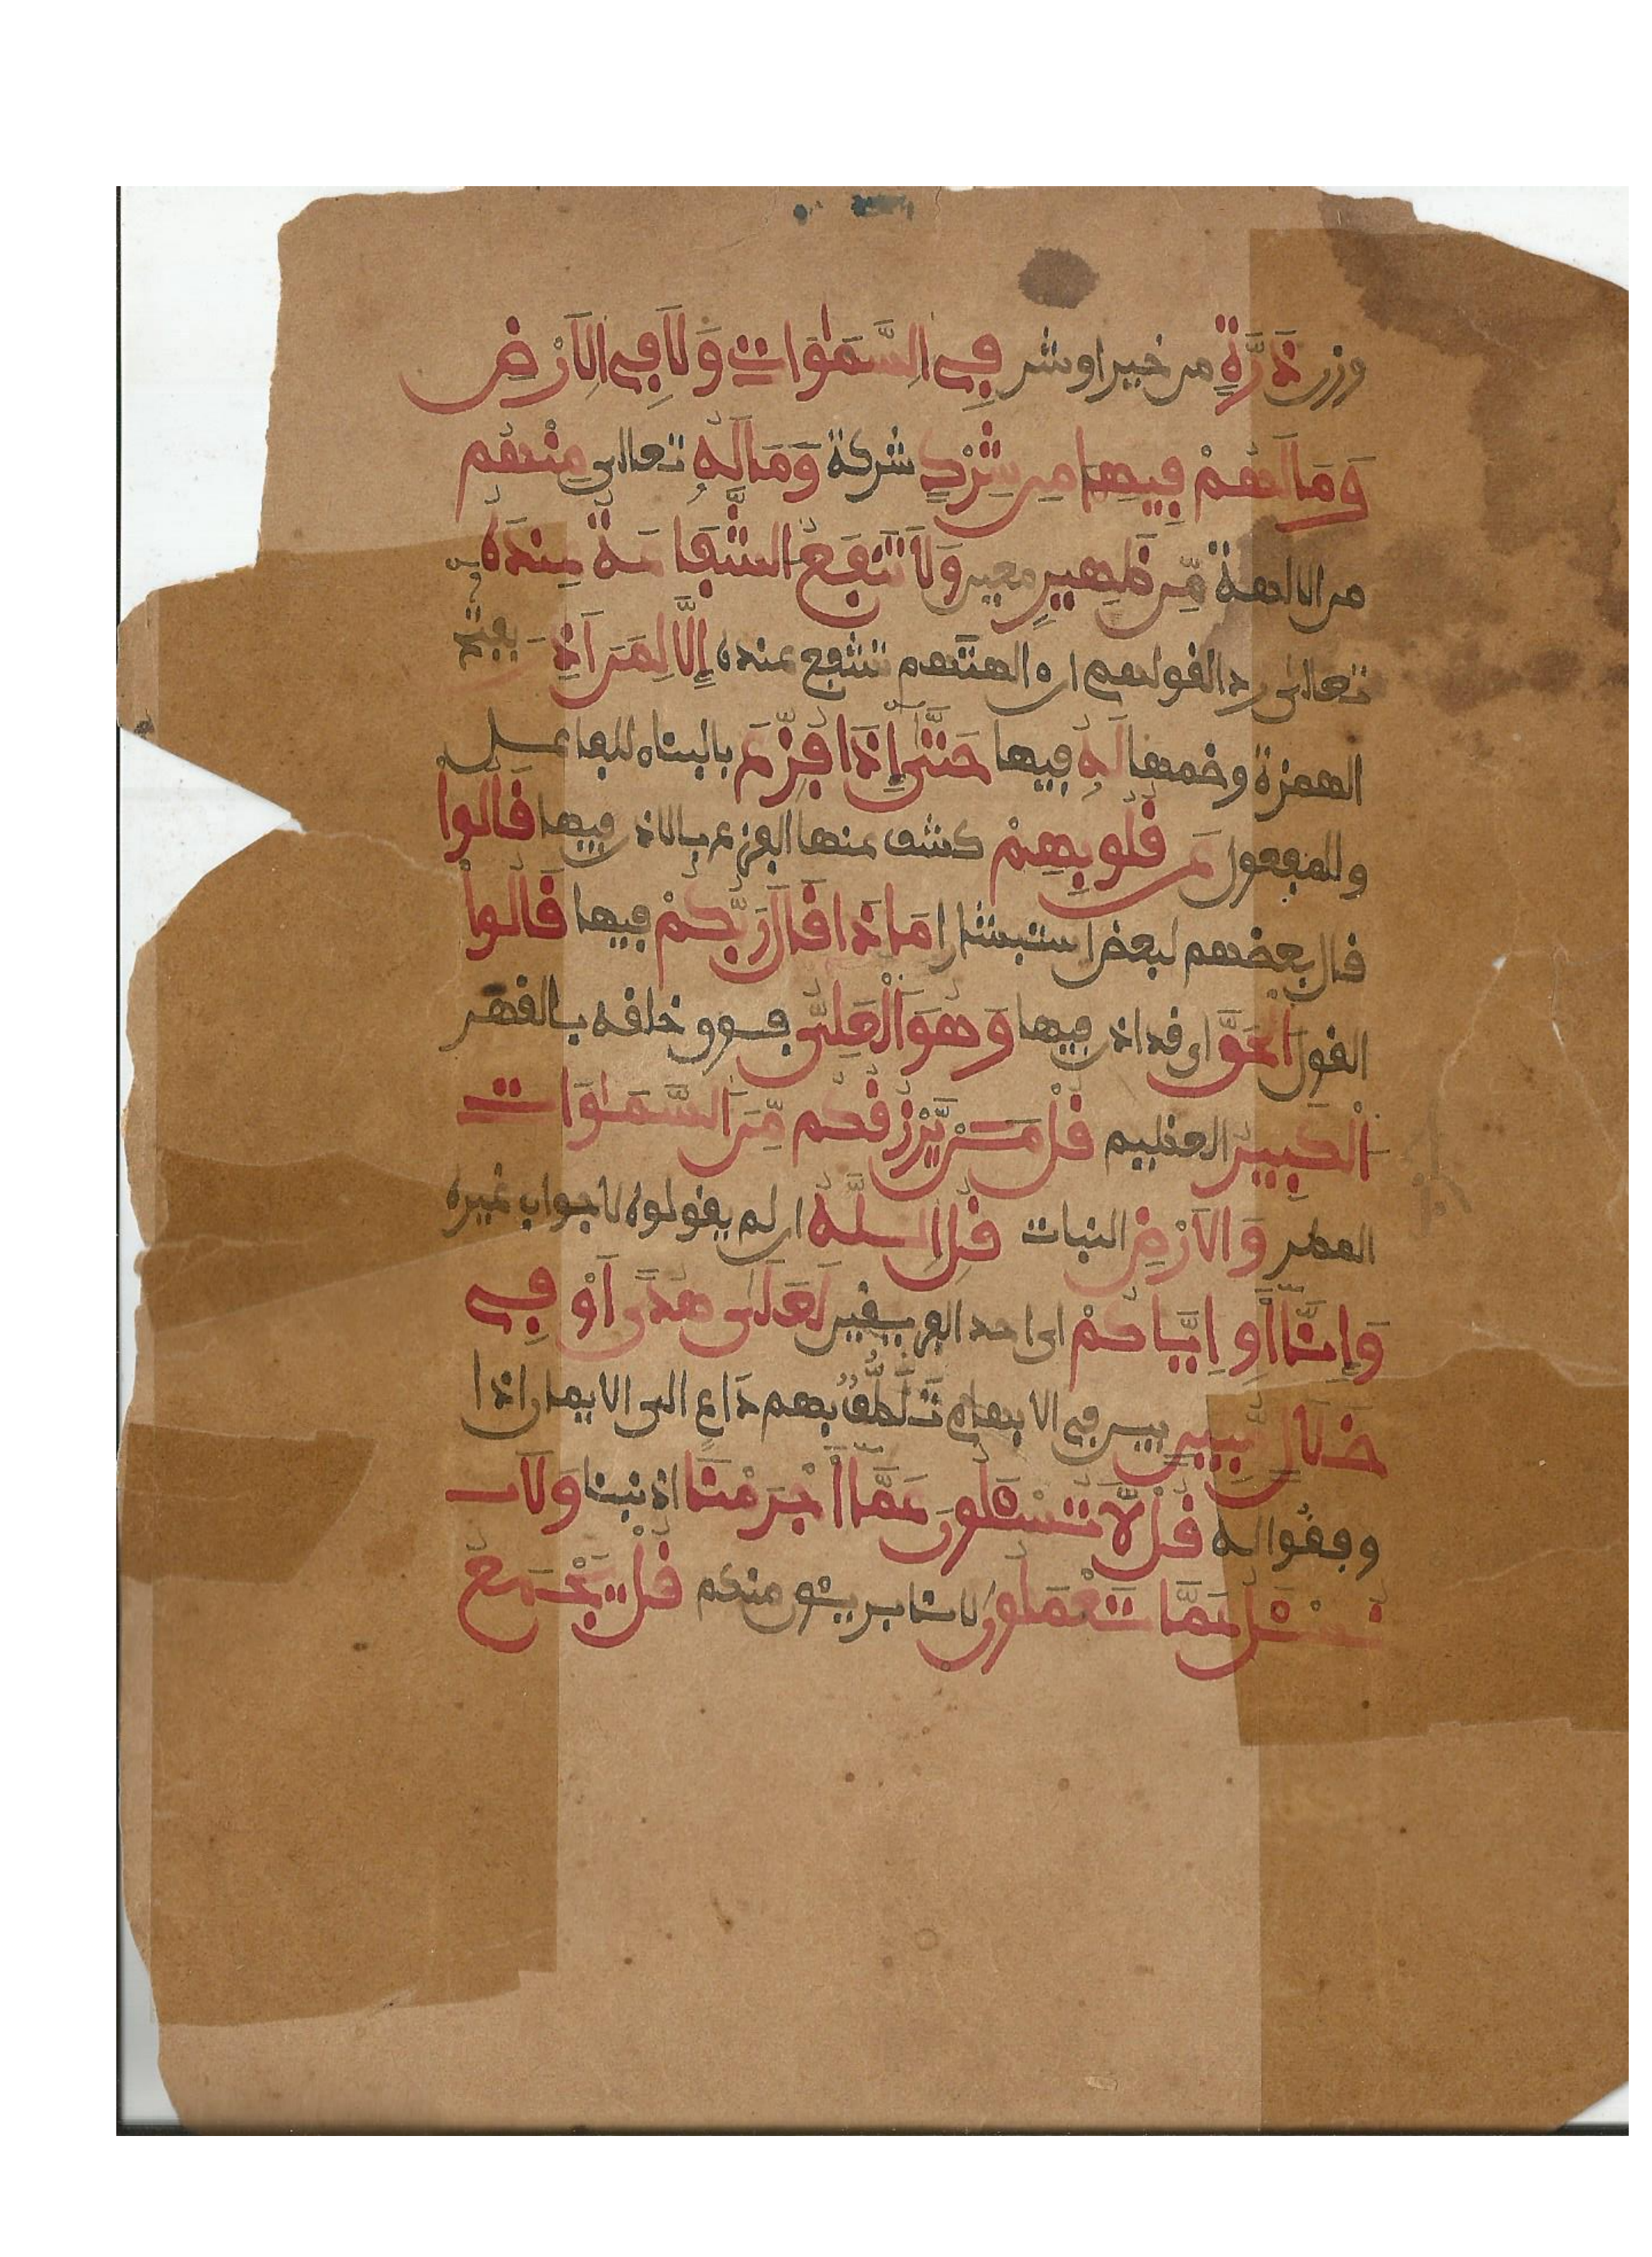 وزن ذَرَّةٍ من خير او شر فِي السَّمَٰوَاتِ وَلَا فِي الَارْضِ
وَمَا لَهُمْ فِيهِمَا مِن شِرْكٍ شركة وَمَا لَهُ تعالى مِنْهُم
من الالهة مِّن ظَهِيرٍ معين وَلَا تَنفَعُ الشَّفَاعَةُ عِندَهُ
تعالى رد القولهم ان الهتهم تشفع عنده إِلَّا لِمَنَ اَذِنَ بفتح
الهمزة وضمها لَهُ فيها حَتَّىٰ إِذَا فُزِّعَ بالبناء للفاعل
وللمفعول عَن قُلُوبِهِمْ كشف عنها الفزع بالاذن فيها قَالُوا
قال بعضهم لبعض استبشارا مَاذَا قَالَ رَبُّكُمْ فيها قَالُواْ
القول اَلْحَقَّ اى قد اذن فيها وَهُوَ اَلْعَلِيُّ فوق خلقه بالقهر
اَلْكَبِيرُ العظيم قُلْ مَنْ يَّرْزُقُكُم مِّنَ اَلسَّمَٰوَاتِ
المطر وَالَارْضِ النبات قُلِ اِللَّهُ ان لم يقولوه لا جواب غيره
وَإِنَّا أَوِ اِيَّاكُمْ اى احد الفريقين لَعَلَىٰ هُدًى اَوْ فِي
ضَلَالٍ مُّبِينٍ بين فى الابهام تَلَطُّفٌ بهم دَاعٍ الى الايمان اذا
وفقوا له قُل لَّا تُسْـَٔلُونَ عَمَّا أَجْرَمْنَا اذنبنا وَلَا
نُسْـَٔلُ عَمَّا تَعْمَلُونَ لانا بريئون منكم قُلْ يَجْمَعُ